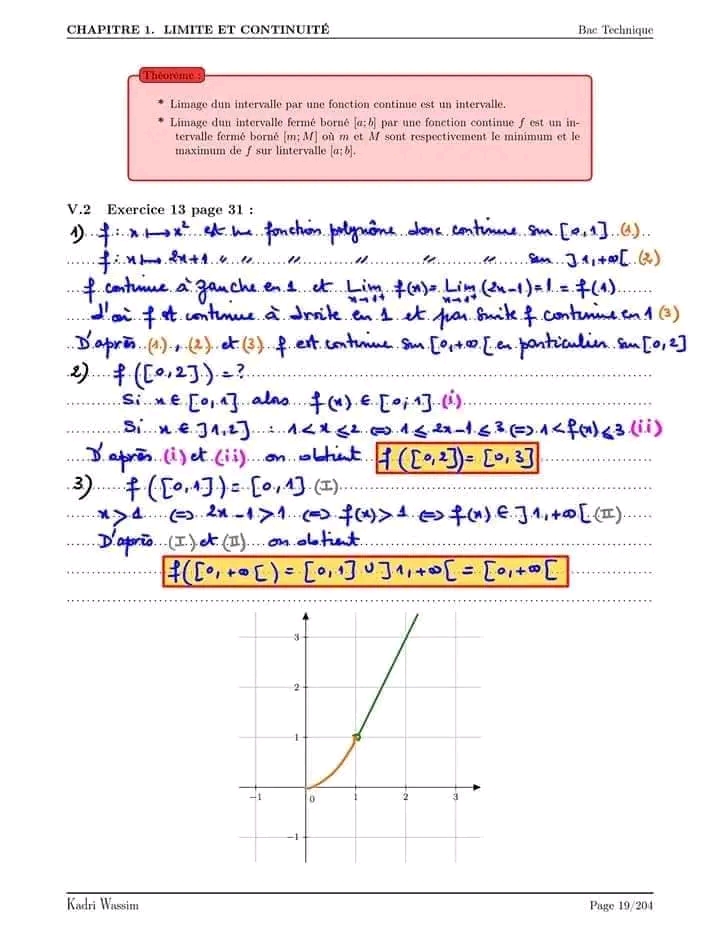 CHAPITRE 1. LIMITE ET CONTINUITÉ Bac Technique
Théorème :
* Limage dun intervalle par une fonction continue est un intervalle.
* Limage dun intervalle fermé borné [a; b] par une fonction continue f est un in-
tervalle fermé borné [m; M] où m et M sont respectivement le minimum et le
maximum de f sur lintervalle [a; b].
V.2 Exercice 13 page 31 :
1) f : x ↦ x² est une fonction polynône donc continue sur [0,1] (1)
f : x ↦ 2x+1 " " " " " sur ]1,+∞[ (2)
f continue à gauche en 1 et Lim x→1⁺ f(x) = Lim x→1⁺ (2x-1) = 1 = f(1)
d'où f est continue à droite en 1 et par suite f continue en 1 (3)
D'après (1), (2) et (3) f est continue sur [0,+∞[ en particulier sur [0,2]
2) f([0,2]) = ?
Si x ∈ [0,1] alors f(x) ∈ [0;1] (i)
Si x ∈ ]1,2] : 1 < x ≤ 2 ⇔ 1 ≤ 2x-1 ≤ 3 ⇔ 1 < f(x) ≤ 3 (ii)
D'après (i) et (ii) on obtient f([0,2]) = [0,3]
3) f([0,1]) = [0,1] (I)
x > 1 ⇔ 2x-1 > 1 ⇔ f(x) > 1 ⇔ f(x) ∈ ]1,+∞[ (II)
D'après (I) et (II) on obtient
f([0,+∞[) = [0,1] ∪ ]1,+∞[ = [0,+∞[
3
2
1
−1 0 1 2 3
−1
Kadri Wassim Page 19/204